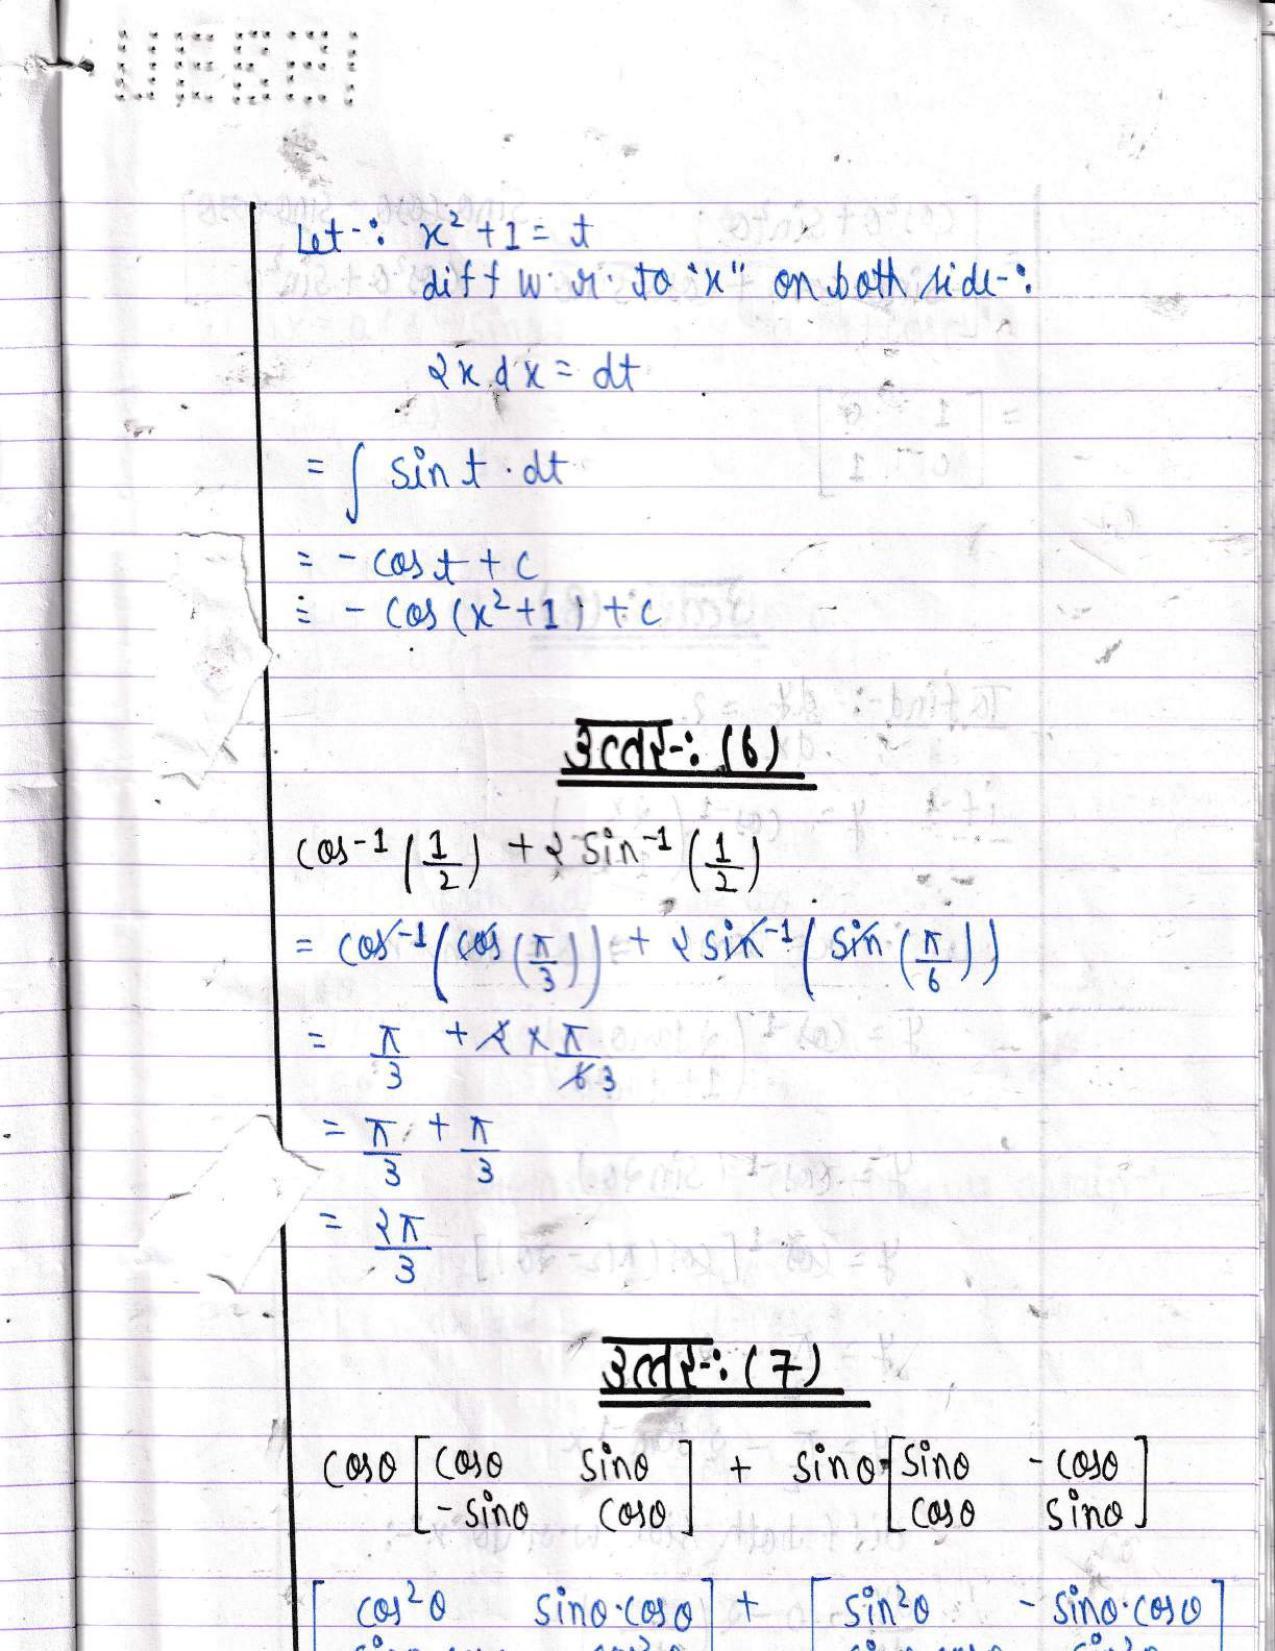 Let-: x² + 1 = t
diff w.r. to "x" on both side-:
2x.dx = dt
= ∫ sin t . dt
= - cos t + c
= - cos (x²+1) + c
उत्तर-: (6)
cos⁻¹ (1/2) + 2 sin⁻¹ (1/2)
= cos⁻¹ (cos (π/3)) + 2 sin⁻¹ (sin (π/6))
= π/3 + 2 × π/6 3
= π/3 + π/3
= 2π/3
उत्तर-: (7)
cosθ [cosθ sinθ] + sinθ [sinθ - cosθ]
[-sinθ cosθ] [cosθ sinθ]
[cos²θ sinθ.cosθ] + [sin²θ - sinθ.cosθ]